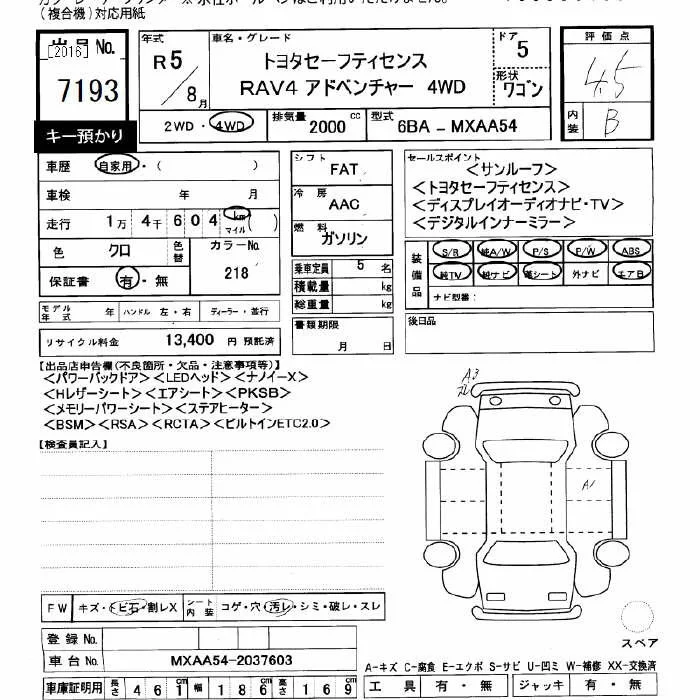 (複合機)対応用紙
出品No.
[2016]
7193
キー預かり
年式
R5/8月
車名・グレード
トヨタセーフティセンス
RAV4 アドベンチャー 4WD
ドア
5
形状
ワゴン
評価点
4.5
内装
B
2WD・4WD
排気量
2000 cc
型式
6BA-MXAA54
車歴
自家用・( )
車検 年 月
走行 1万 4千 6 0 4 km マイル ( )
色 クロ
色替
カラーNo.
218
保証書 有・無
シフト
FAT
冷房
AAC
燃料
ガソリン
乗車定員 5 名
積載量 kg
総重量 kg
セールスポイント
<サンルーフ>
<トヨタセーフティセンス>
<ディスプレイオーディオナビ・TV>
<デジタルインナーミラー>
装備品
S/R 純A/W P/S P/W ABS
純TV 純ナビ 革シート 外ナビ エアB
ナビ型番:
モデル年式 年 ハンドル 左・右 ディーラー・並行
リサイクル料金 13,400 円 預託済
書類期限
月 日
後日品
【出品店申告欄(不良箇所・欠品・注意事項等)】
<パワーバックドア><LEDヘッド><ナノイーX>
<Hレザーシート><エアシート><PKSB>
<メモリーパワーシート><ステアヒーター>
<BSM><RSA><RCTA><ビルトインETC2.0>
【検査員記入】
A3
A1
FW キズ・トビ石・割レX
シート内装 コゲ・穴・汚レ・シミ・破レ・スレ
スペア
登録No.
車台No. MXAA54-2037603
A-キズ C-腐食 E-エクボ S-サビ U-凹ミ W-補修 XX-交換済
車庫証明用 長さ 461 cm 幅 186 cm 高さ 169 cm
工具 有・無 ジャッキ 有・無